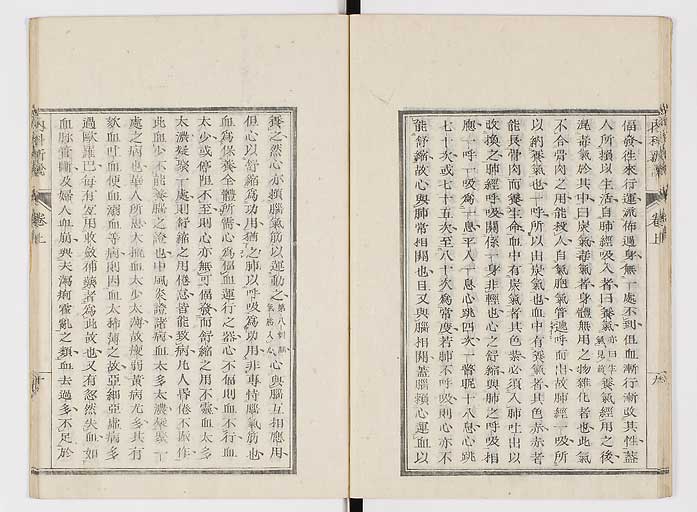 偪發往來行運流佈遍身無一處不到但血漸行漸改其性蓋
人所賴以生活自肺經吸入者曰養氣養氣經用之後
混毒氣於其中曰炭氣炭氣者身體無用之物雜化者也此氣
不合骨肉之用能殺人自氣胞氣管透呼而出故肺經一吸所
以納養氣也一呼所以由炭氣也血中有養氣者其色赤赤者
能長骨肉而養生命血中有炭氣者其色紫必須入肺吐出以
改換之肺經呼吸關係一身非輕也心之舒縮與肺之呼吸相
應一呼一吸為一息平人一息心跳四次一晷呢十八息心跳
七十次或七十五次至八十次為常度若肺不呼吸則心亦不
能舒縮故心與肺常相關也且又與腦相關蓋腦賴心運血以
內科新說
卷上
九
養之然心亦賴腦氣筋以運動之心與腦互相應用
但心以舒縮為功用猶之肺以呼吸為功用非專恃腦氣筋也
血為保養全體所需心為偪血運行之器心不偪則血不行血
太少或停阻不至則心亦無可偪發而舒縮之用不靈血太多
太濃凝聚一處則舒縮之用倦怠皆能致病凡人昏倦不欲作
此血少不能養腦之證也中風炎證諸病血太多太濃凝聚一
處之病也華人所患大抵血太少太薄故瘦弱黃病尤多其有
欬血吐血便血溺血等病則因血太稀薄之故亞細亞虛病多
過歐羅巴每有宜用收斂補藥者為此故也又有忽然失血如
血脉實斷及婦人血崩與夫瀉痢霍亂之類血去過多不足於
內科新說
卷上
十